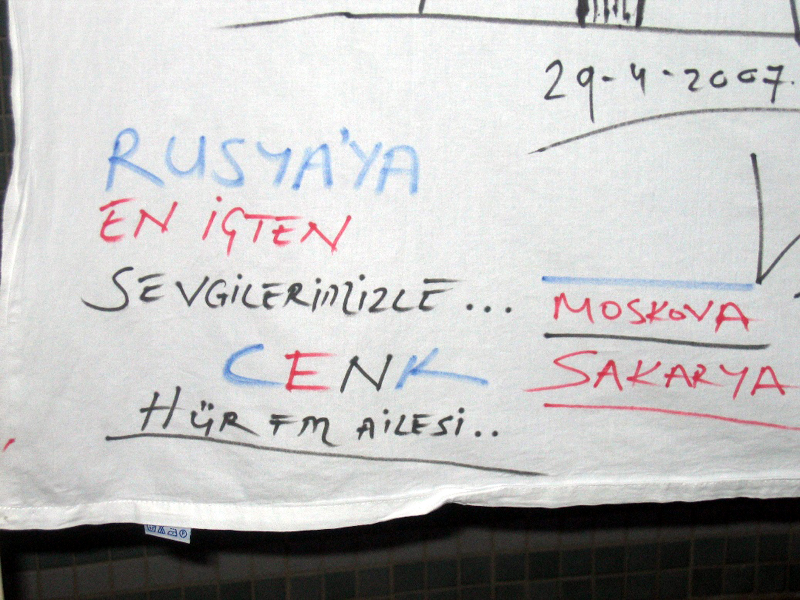 29-4-2007.
RUSYA'YA
EN İÇTEN
SEVGİLERİMİZLE...
MOSKOVA
CENK
SAKARYA
HÜR FM AİLESİ..